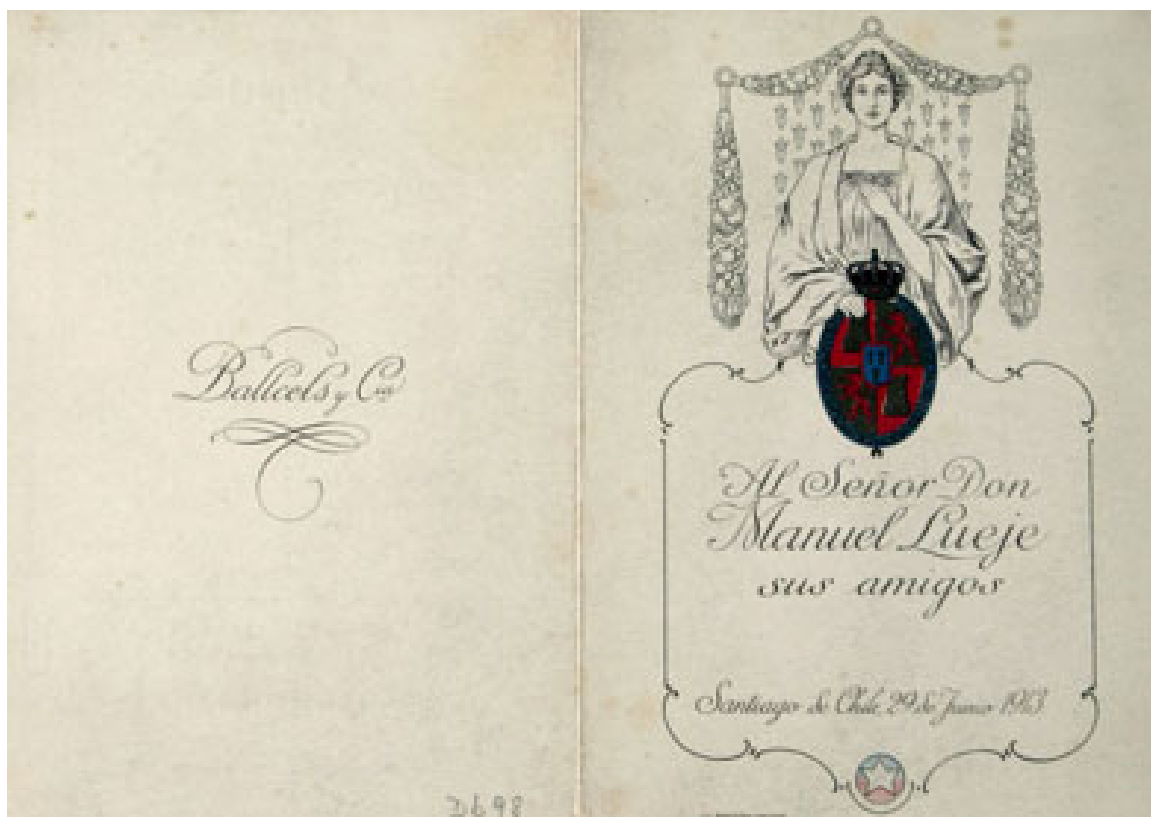 Ballcels y Cía
D698
Al Señor Don
Manuel Lueje
sus amigos
Santiago de Chile, 29 de Junio 1913